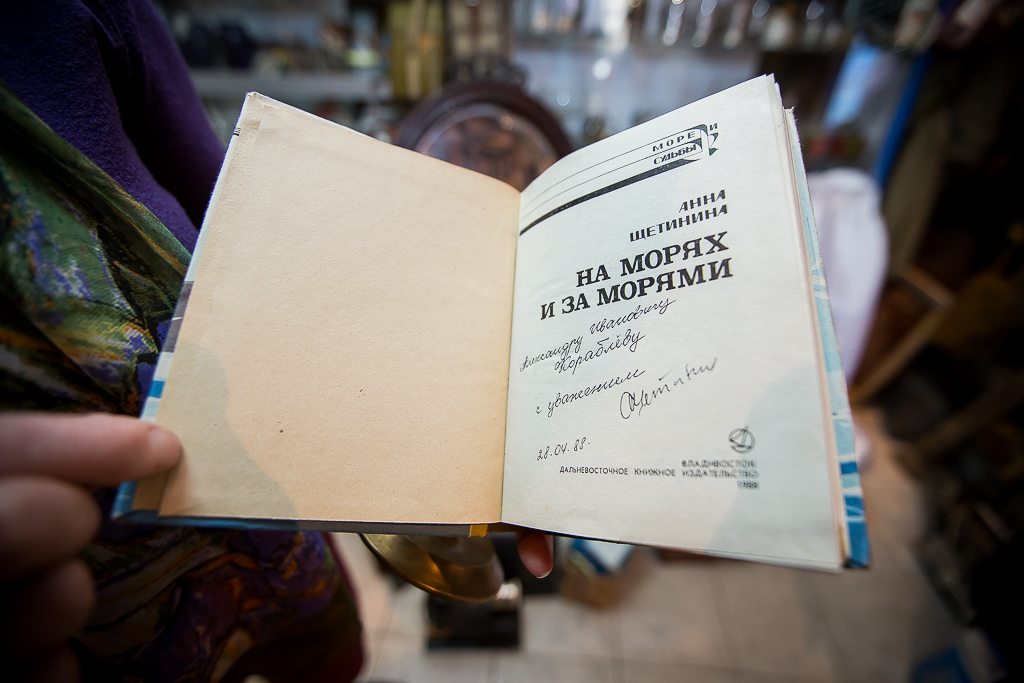 МОРЕ И
СУДЬБЫ
АННА
ЩЕТИНИНА
НА МОРЯХ
И ЗА МОРЯМИ
Александру Ивановичу
Кораблёву
с уважением
28.04.88.
ВЛАДИВОСТОК
ДАЛЬНЕВОСТОЧНОЕ КНИЖНОЕ ИЗДАТЕЛЬСТВО
1988